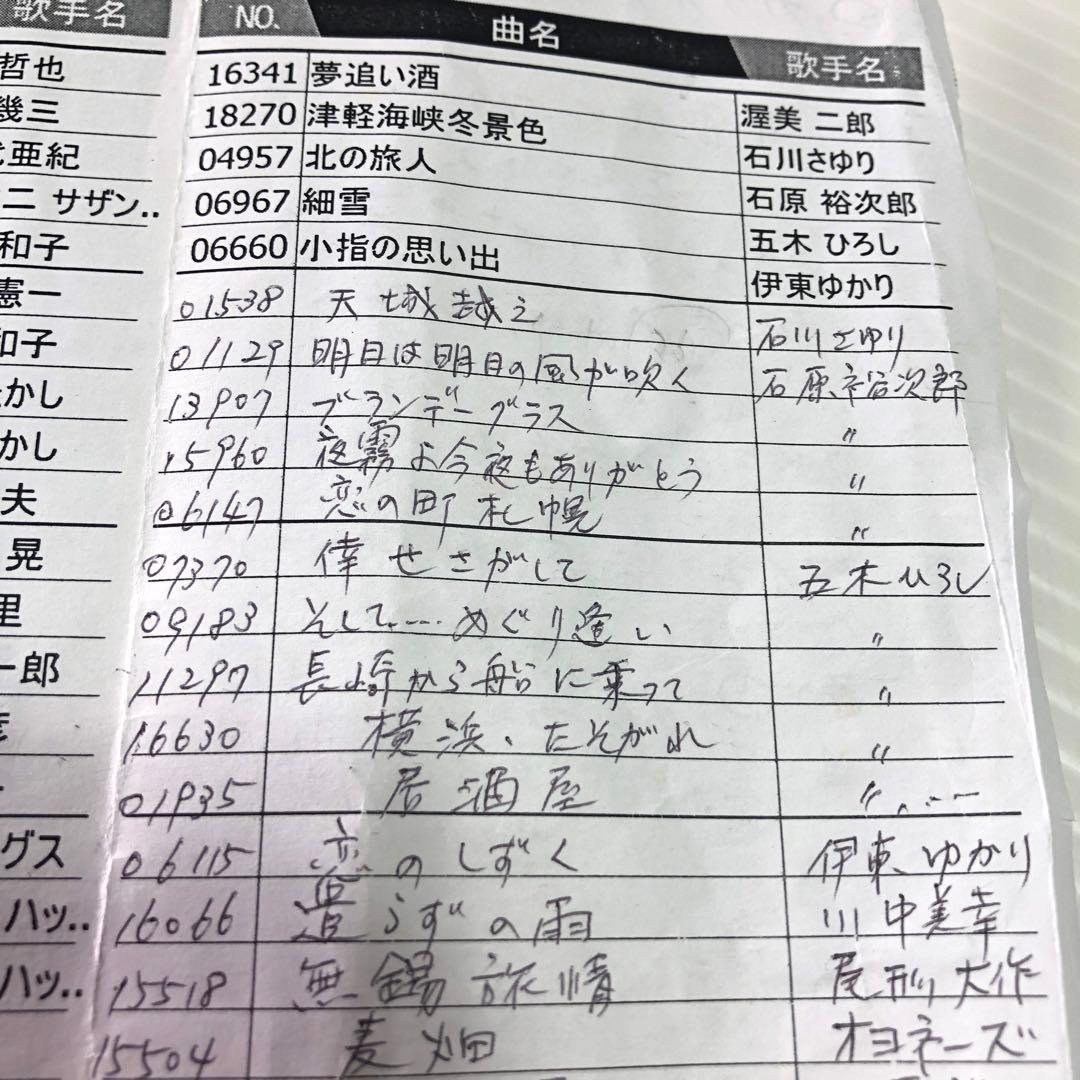 歌手名
哲也
幾三
亜紀
二 サザン..
和子
憲一
和子
かし
かし
夫
晃
里
一郎
グス
ハッ..
ハッ..
NO. 曲名 歌手名
16341 夢追い酒 渥美 二郎
18270 津軽海峡冬景色 石川さゆり
04957 北の旅人 石原 裕次郎
06967 細雪 五木 ひろし
06660 小指の思い出 伊東ゆかり
01538 天城越え 石川さゆり
01129 明日は明日の風が吹く 石原裕次郎
13907 ブランデーグラス 〃
15960 夜霧よ今夜もありがとう 〃
06147 恋の町札幌 〃
07370 倖せさがして 五木ひろし
09183 そして....めぐり逢い 〃
11297 長崎から船に乗って 〃
16630 横浜、たそがれ 〃
01935 居酒屋 〃
06115 恋のしずく 伊東ゆかり
16066 遣らずの雨 川中美幸
15518 無錫旅情 尾形大作
15504 麦畑 オヨネーズ